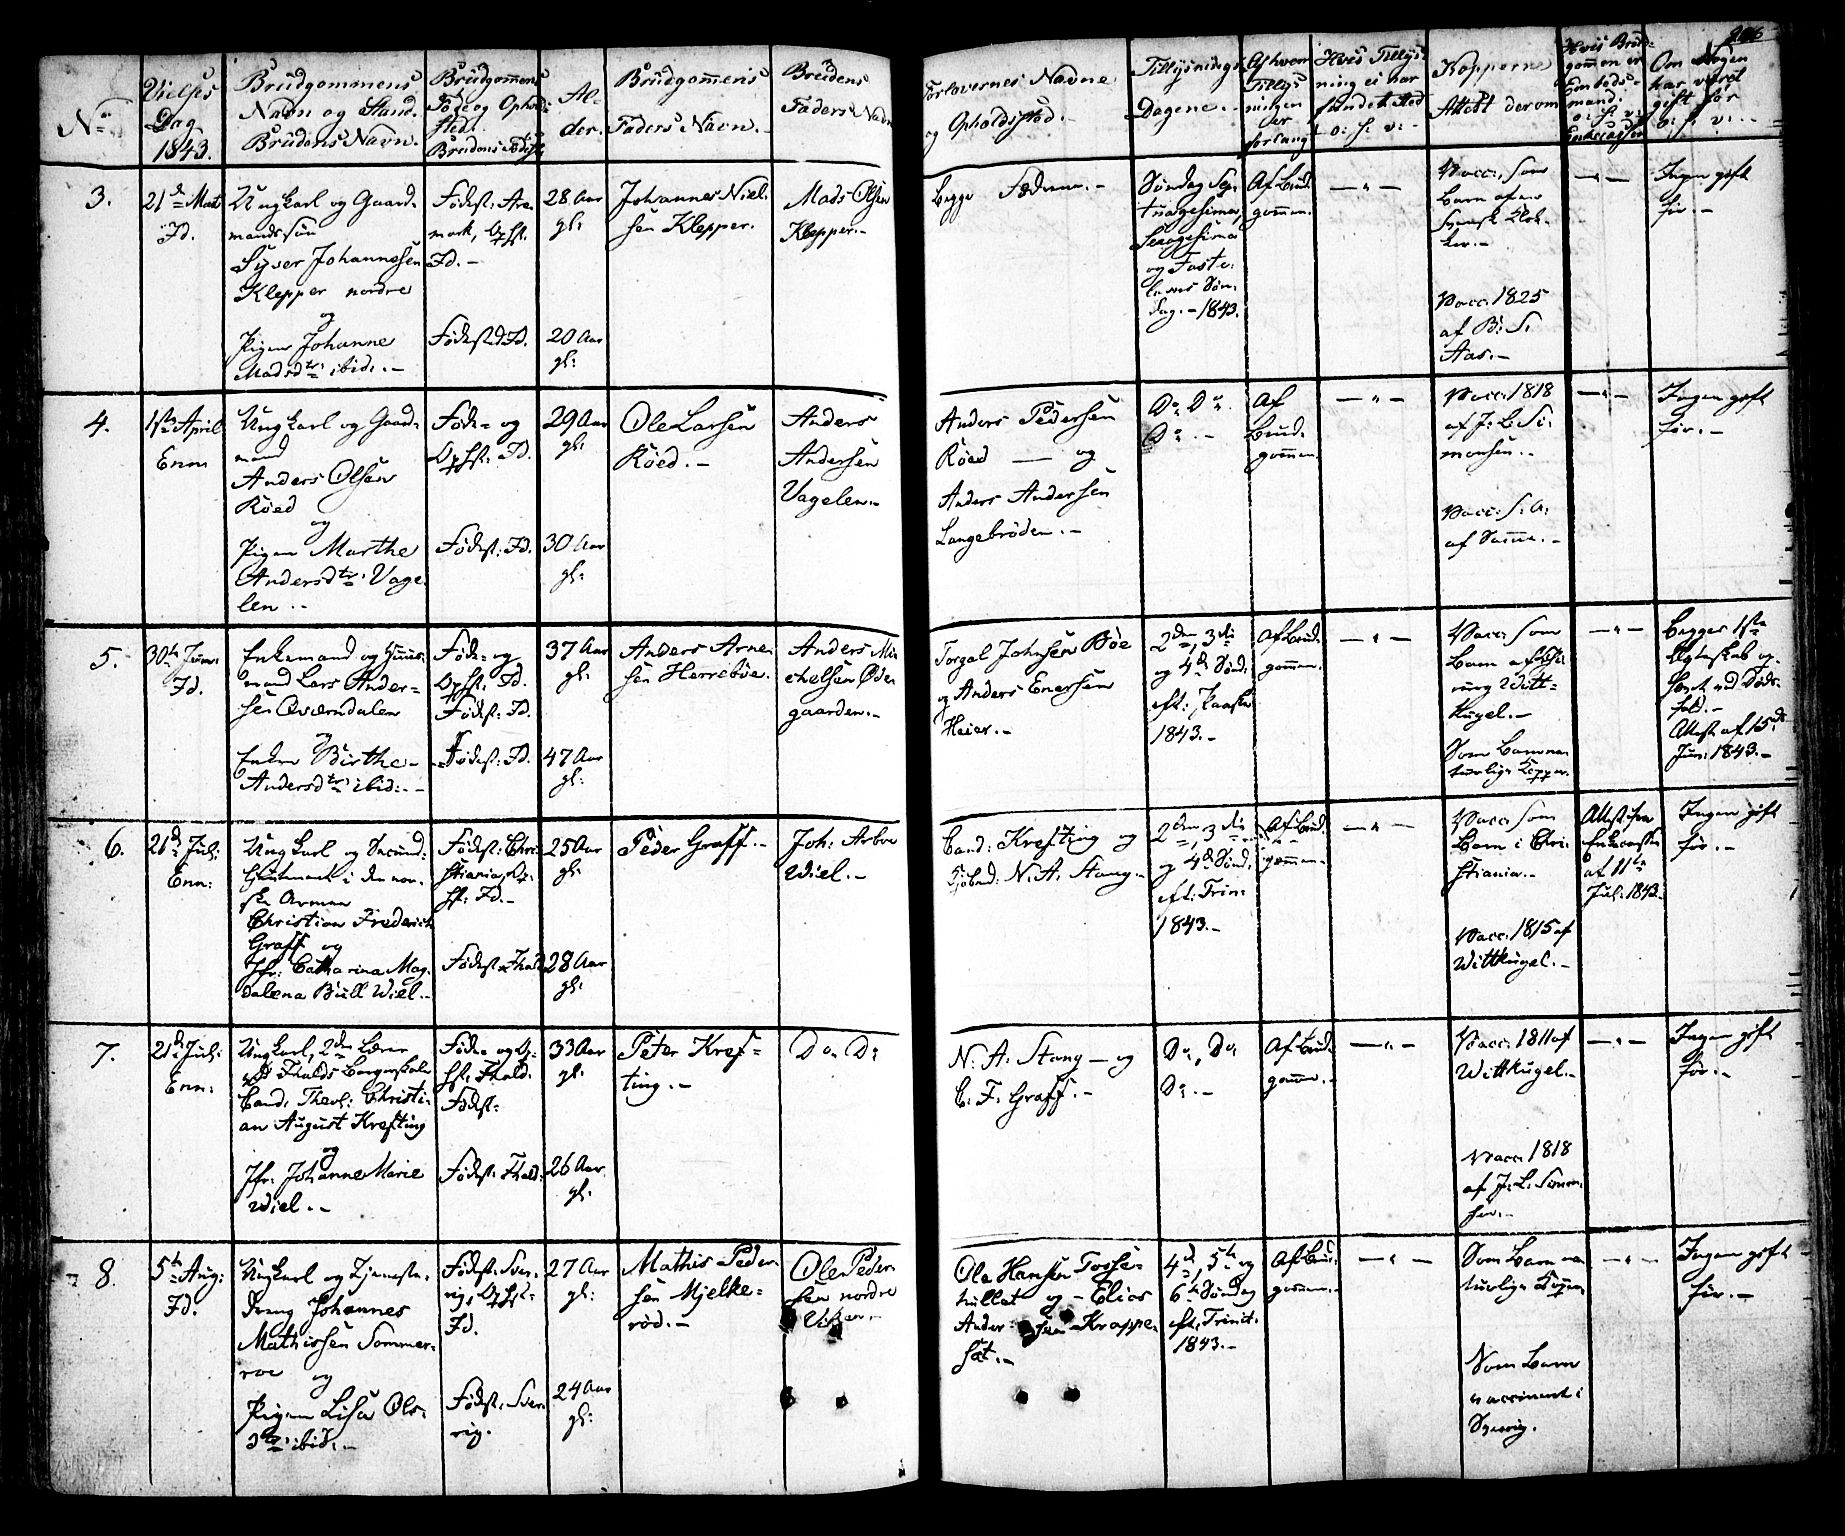 206
No
Vielses
Dag
1843.
Brudgommens
Navn og Stand.
Brudens Navn.
Brudgommens
Føde og Opholds
Sted.
Brudens Fødest:
Al-
der.
Brudgommens
Faders Navn.
Brudens
Faders Navn
Forlovernes Navne
og Opholdssted.
Tillysnings
Dagene.
Af hvem
Tillys-
ningen
er
forlangt
Hvis Tillys-
ning ei har
fundet Sted
o: s: v:
Kopperne
Attest derom
Hvis Brud-
gommen er
Om Nogen
har været
gift før
o: s: v:
3.
21de Marts
Id.
Ungkarl og Gaard-
mandssøn
Syver Johannesen
Klepper nordre
og
Pigen Johanne
Madsdtr ibid:
Fødest: Are-
mark, Opst.
Id.
Fødested Id.
28 Aar
gl:
20 Aar
gl:
Johannes Niel-
sen Klepper.
Mads Olsen
Klepper.
Begge Fædrene.
Søndag Sep-
tuagesima,
Sexagesima
og Faste-
lavns Søn-
dag. 1843.
Af Brud-
gommen.
Vacc: som
Barn af en
Svensk Klok-
ker.
Vacc: 1825
af B: S:
Aas.
Ingen gift
før.
4.
1ste April
Enn:
Ungkarl og Gaard-
mand
Anders Olsen
Röed
og
Pigen Marthe
Andersdtr Vage-
len
Føde- og
Opst: Id.
Fødest: Id.
29 Aar
gl:
30 Aar
gl:
Ole Larsen
Röed.
Anders
Andersen
Vagelen.
Anders Pedersen
Röed og
Anders Andersen
Langebröden.
Do Do
Do
Af
Brud-
gommen.
Vacc: 1818
af J: L: Si-
monsen.
Vacc: S: A:
af Samme.
Ingen gift
før.
5.
30te Juni
Id.
Enkemand og Huus-
mand Lars Ander-
sen Qværndalen
og
Enken Birthe
Andersdtr ibid:
Føde- og
Opst: Id.
Fødest: Id.
Fødest: Id.
37 Aar
gl:
47 Aar
gl:
Anders Arne-
sen Herreböe.
Anders Mi-
chelsen Öde-
gaarden.
Torgal Johnsen Böe
og Anders Enersen
Heier.
2den, 3die
og 4de Sönd:
eft: Paaske
1843.
Af Brud-
gommen.
Vacc: som
Barn af Chi-
rurg Witt-
kugel.
Som Barn na-
turlige Kopper.
Begges 1ste
Ægteskab op-
hævet ved Døds-
fald.
Attest af 15de
Juni 1843.
6.
21de Juli
Enn:
Ungkarl og Secund-
lieutenant i den nor-
ske Armee
Christian Frederich
Graff og
Jfr: Catharina Mag-
dalena Bull Wiel.
Fødest: Chri-
stiania, Op-
st: Id.
Fødest: Fhald
25 Aar
gl:
28 Aar
gl:
Peder Graff.
Joh: Arbo
Wiel.
Cand: Krefting og
Kjöbmd: N. A. Stang.
2den, 3die
og 4de Sönd:
eft: Trin:
1843.
Af Brud-
gommen.
Vacc: som
Barn i Chri-
stiania.
Vacc: 1815 af
Wittkugel.
Attest fra
Enkecassen
af 11te
Juli 1843.
Ingen gift
før.
7.
21de Juli
Enn:
Ungkarl, 2den Lærer
ved Fhalds Borgerskole
Cand: Theol: Christi-
an August Krefting
og
Jfr: Johanne Marie
Wiel.
Føde- og Op-
st: Fhald.
Fødest:
Fødest: Fhald:
33 Aar
gl:
26 Aar
gl:
Peter Kref-
ting.
Do Do
N: A: Stang og
C: F: Graff.
Do, Do
Do.
Af Brud-
gomm.
Vacc: 1811 af
Wittkugel.
Vacc: 1818
af J: L: Simon-
sen.
Ingen gift
før.
8.
5te Aug:
Id.
Ungkarl og Tjeneste-
dreng Johannes
Mathissen Sommer-
roe og
Pigen Lisa Ols-
dtr ibid.
Fødest: Sver-
rig, Opst:
Id.
Fødest: Sver-
rig.
27 Aar
gl:
24 Aar
gl:
Mathis Peder-
sen Mjelke-
röd.
Ole Peder-
sen nordre
Ole Hansen Tosse-
hullet og Elias
Andersen Krappe-
sæt.
4de, 5te og
6te Søndag
eft: Trinit:
1843.
Af Brud-
gommen.
Som Barn na-
turlige Kopper
Som Barn
vaccineret i
Sverrig.
Ingen gift
før.